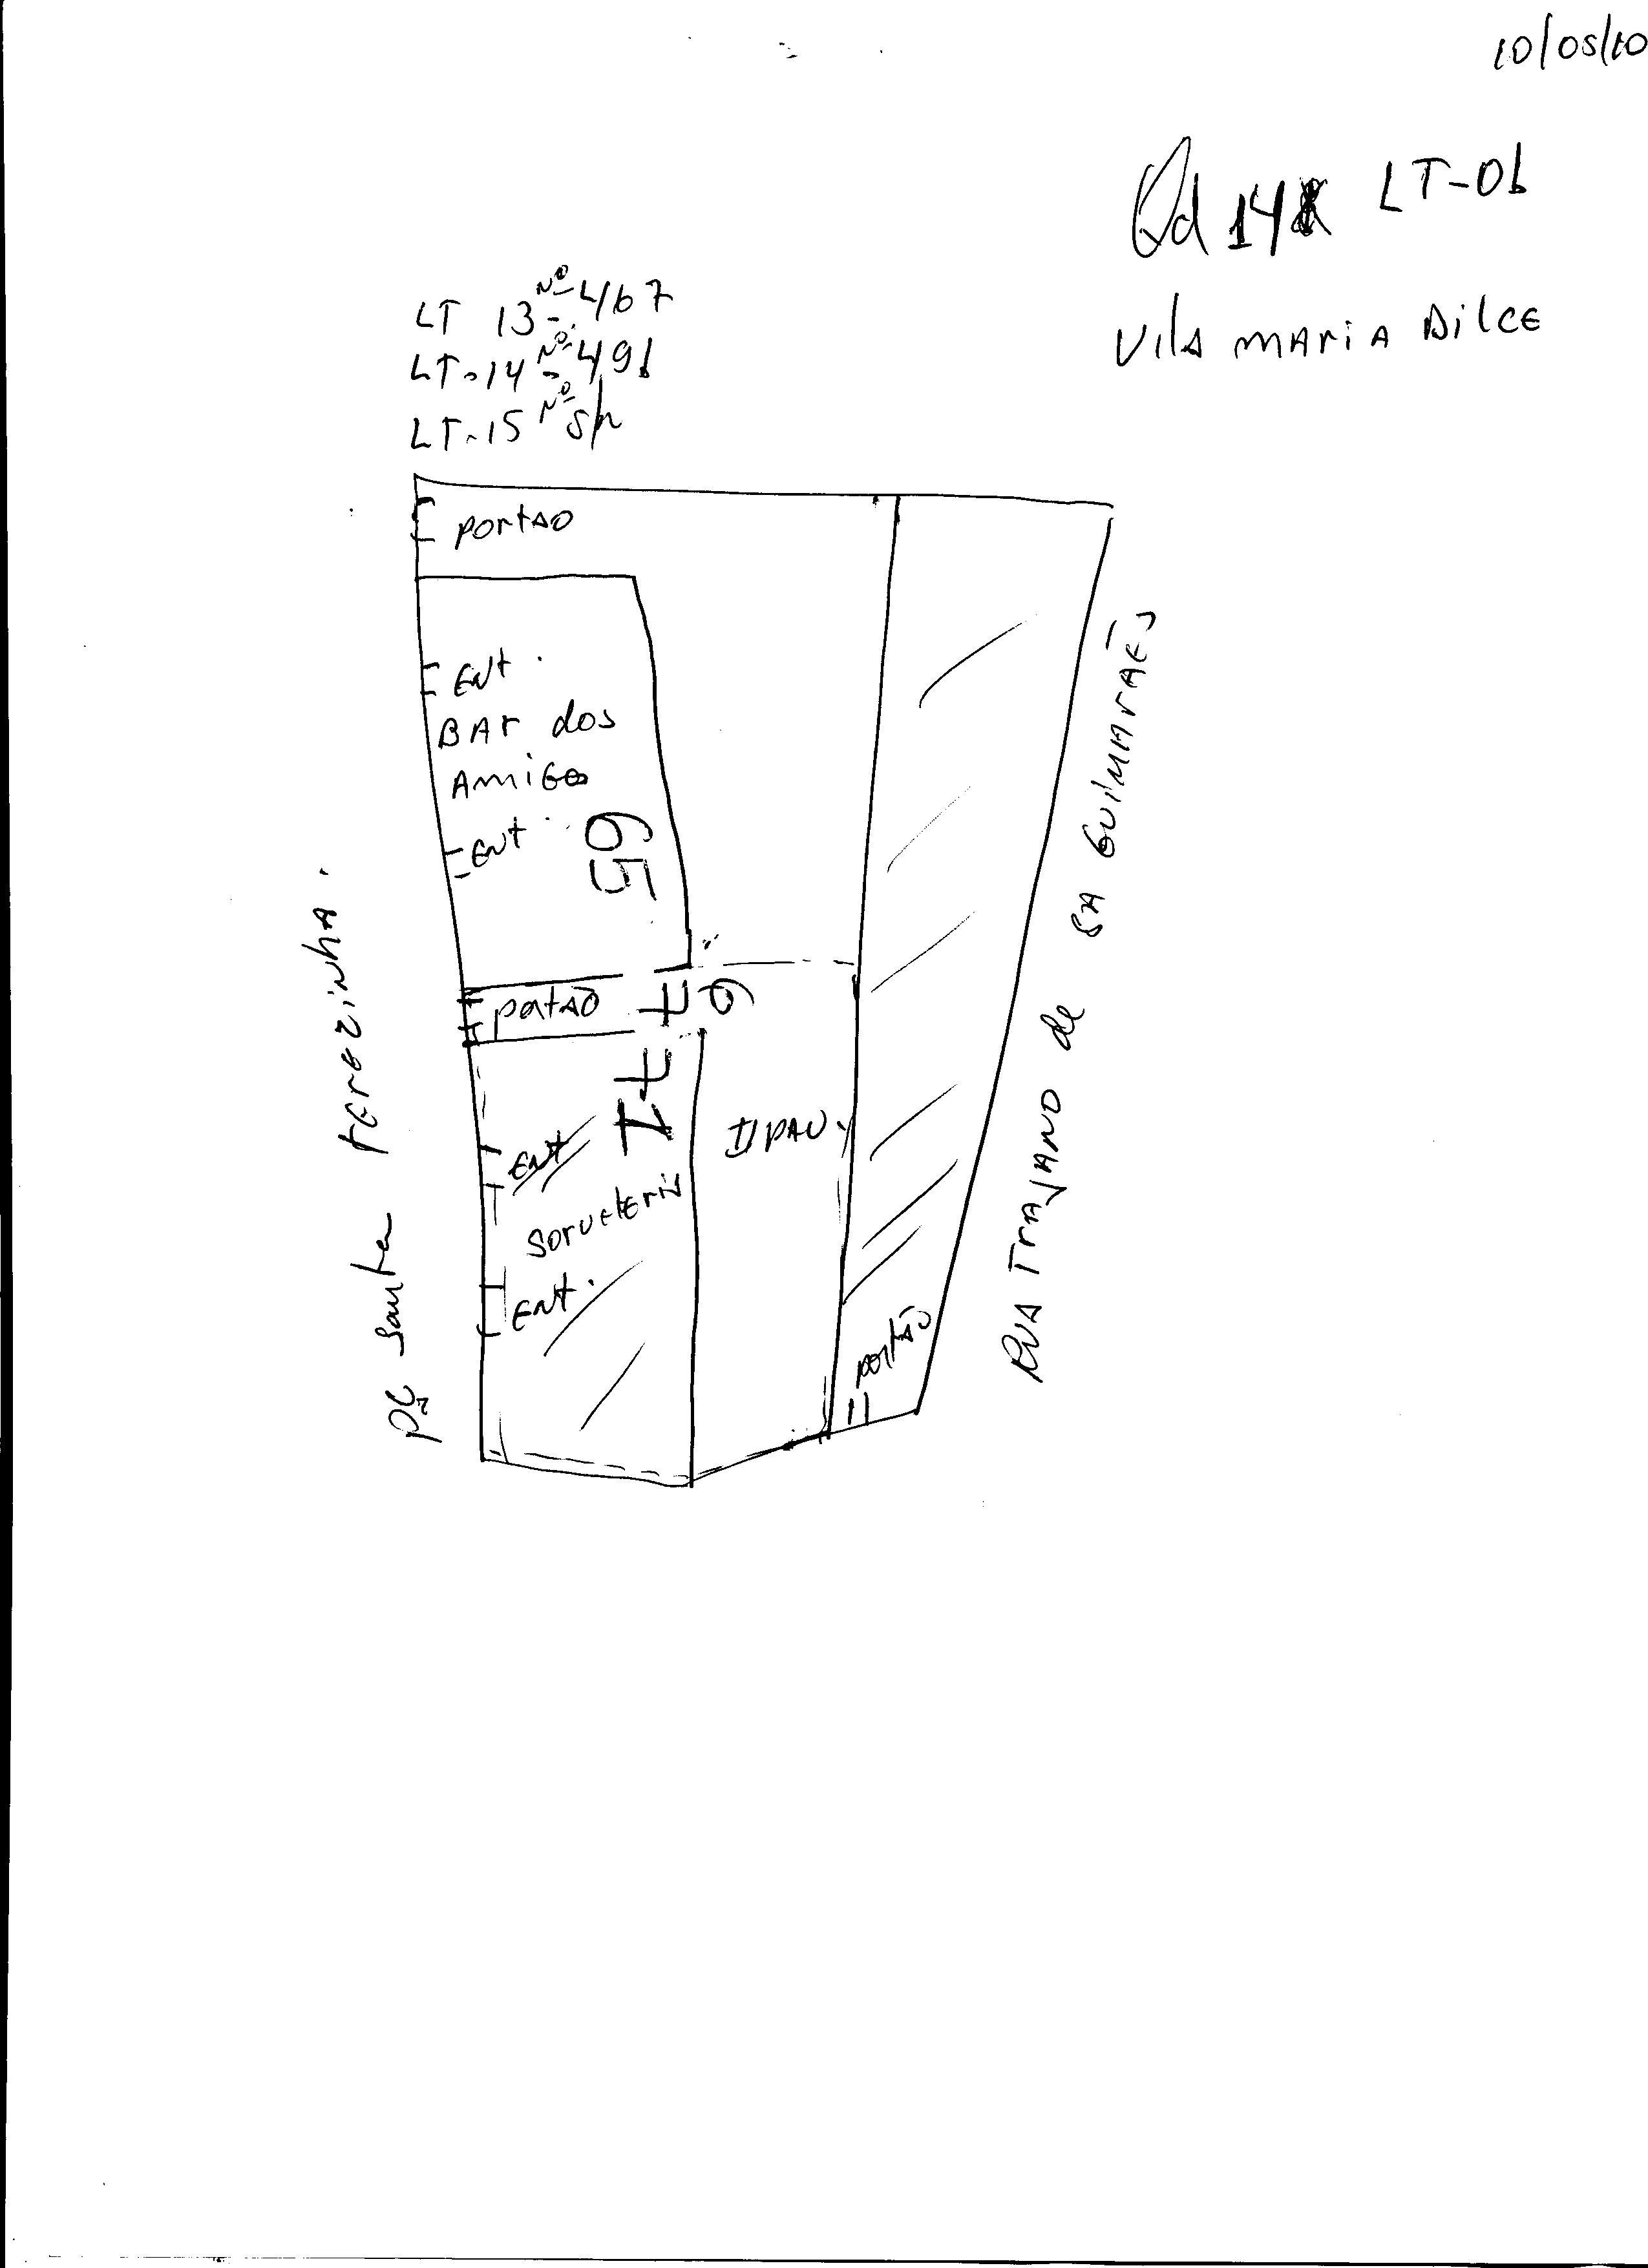 10/05/10
Qd 14 LT-06
Vila MARIA DILCE
LT 13 Nº 467
LT-14 Nº 496
LT-15 Nº S/n
portAO
ENt.
BAr dos
Amigo
ENt.
65
portAO
71
ENt
Sorveteria
ENt.
II PAV.
portão
PÇ Santa terezinha.
RUA TrAJANO de SA GUIMArÃES